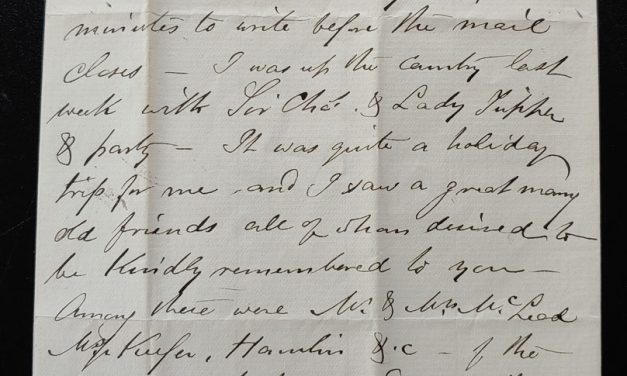 minutes to write before the mail
closes — I was up the country last
week with Sir Chas. & Lady Tupper
& party — It was quite a holiday
trip for me and I saw a great many
old friends all of whom desired to
be kindly remembered to you —
Among these were Mr. & Mrs. McLeod
Keefer, Hamlin &c — of the